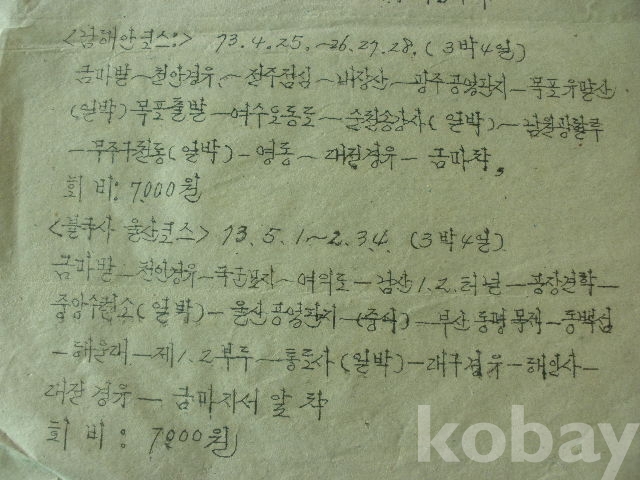 <남해안코스> 73.4.25.~26.27.28. (3박4일)
금마발~천안경유~전주점심~내장산~광주공영단지~목포유달산
(일박) 목포출발~여수오동도~순천송광사(일박)~남원광한루
-무주구천동(일박)-영동~대전경유-금마착,
회비: 7000원
<불국사 울산코스> 73.5.1~2.3.4. (3박4일)
금마발-천안경유-국군묘지~여의도-남산1.2.터널-공장견학-
중앙수련소(일박)-울산공영단지-(중식)-부산동평목장-동백섬
-해운대-제1.2부두-통도사(일박)-대구경유-해인사-
대전경유-금마지서앞착
회비: 7000원
kobay